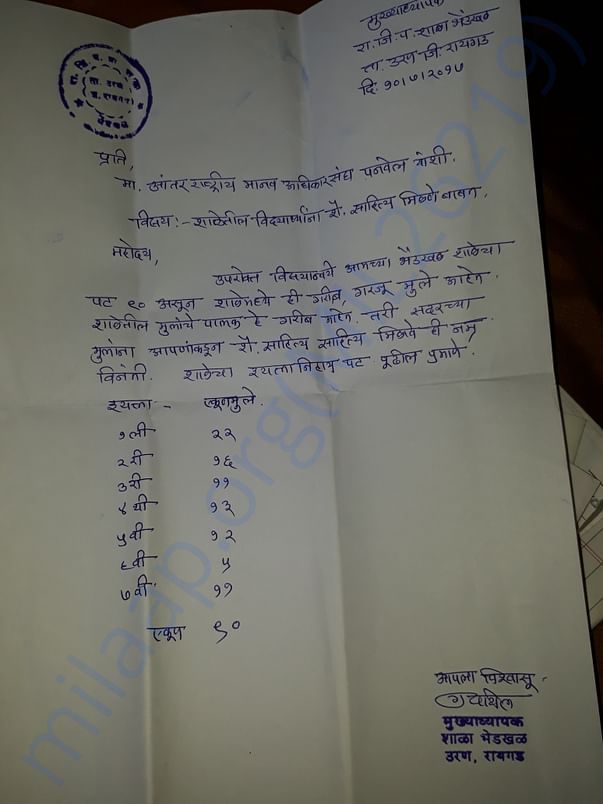 मुख्याध्यापक
रा.जि.प.शाळा भेंडखळ
ता. उरण जि. रायगड
दि. १०।७।२०१७
प्रति,
मा. आंतर राष्ट्रीय मानव अधिकार संघ पनवेल गोशी.
विषय:- शाळेतील विद्यार्थ्यांना शै. साहित्य मिळणे बाबत.
महोदय,
उपरोक्त विषयान्वये आमच्या भेंडखळ शाळेचा
पट ९० असून शाळेमध्ये ही गरीब, गरजू मुले आहेत.
शाळेतील मुलांचे पालक हे गरीब आहेत. तरी सदरच्या
मुलांना आपणांकडून शै. साहित्य साहित्य मिळावे ही नम्र
विनंती. शाळेचा इयत्तानिहाय पट पुढील प्रमाणे.
इयत्ता - एकूणमुले.
१ली २२
२री १६
३री ११
४थी १३
५वी १२
६वी ५
७वी ११
एकूण ९०
आपला विश्वासू
मुख्याध्यापक
शाळा भेंडखळ
उरण, रायगड
milaap.org